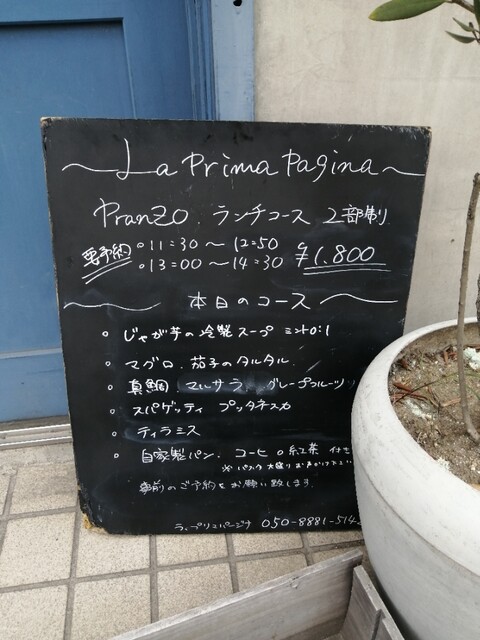 La Prima Pagina
Pranzo ランチコース 2部制
要予約 ○11:30 〜 12:50
○13:00 〜 14:30 ¥1.800
本日のコース
○ じゃが芋の冷製スープ ミント
○ マグロ.茄子のタルタル
○ 真鯛 マルサラ グレープフルーツ
○ スパゲッティ プッタネスカ
○ ティラミス
○ 自家製パン. コーヒ o 紅茶 付き
※ パスタ 大盛り お声がけ下
事前のご予約をお願い致します.
ラ.プリマパージナ 050-8881-514